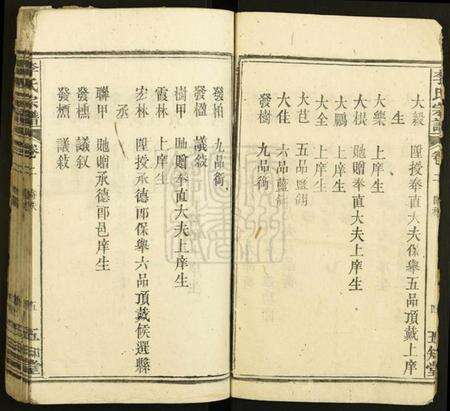 李氏宗譜
卷
五知堂
大穀 貤授奉直大夫保舉五品頂戴上庠
生
大樂 上庠生
大棋 貤贈奉直大夫上庠生
大鵬 上庠生
大全 上庠生
大芑 五品藍翎
大佳 六品藍翎
發樹 九品銜
發柏 九品銜
發楹 議敘
樹甲 貤贈奉直大夫上庠生
霞林 上庠生
宏林 貤授承德郎保舉六品頂戴候選縣
丞
聯甲 貤贈承德郎邑庠生
發櫄 議叙
發 議敍
李氏宗譜
卷
五
五知堂